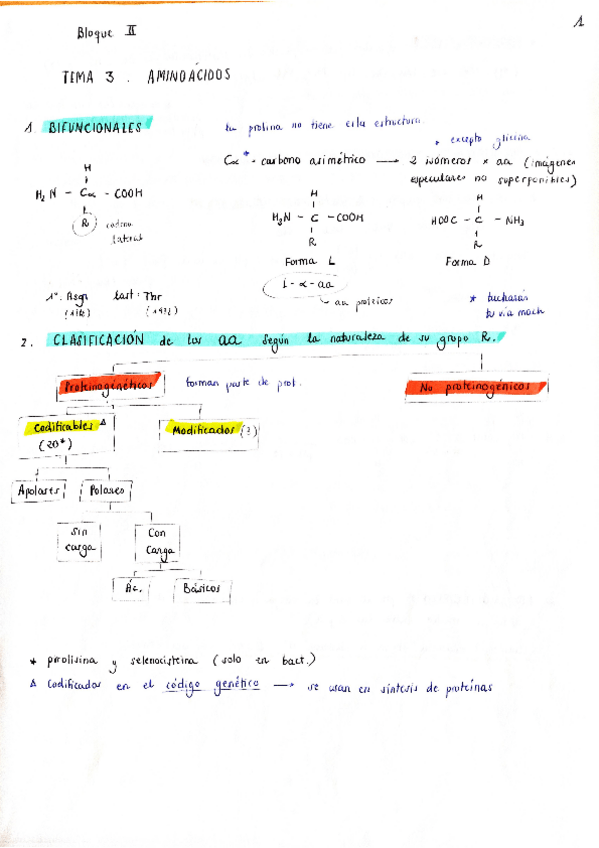 1
Bloque II
TEMA 3 . AMINOÁCIDOS
1. BIFUNCIONALES
La prolina no tiene esta estructura
* excepto glicina
Cα* - carbono asimétrico → 2 isómeros x aa (imágenes
especulares no superponibles)
H
H₂N - Cα - COOH
R cadena
lateral
H
H₂N - C - COOH
R
Forma L
L-α-aa
aa proteicos
H
HOOC - C - NH₂
R
Forma D
1º: Asgn last: Thr
2. CLASIFICACIÓN de los aa según la naturaleza de su grupo R.
Proteinogenéticos forman parte de prot.
No proteinogénicos
Codificables Δ
(20*)
Modificados (?)
Apolares Polares
Sin
carga
Con
Carga
Ác. Básicos
* pirolisina y selenocisteina (solo en bact.)
Δ Codificados en el código genético → se usan en síntesis de proteínas